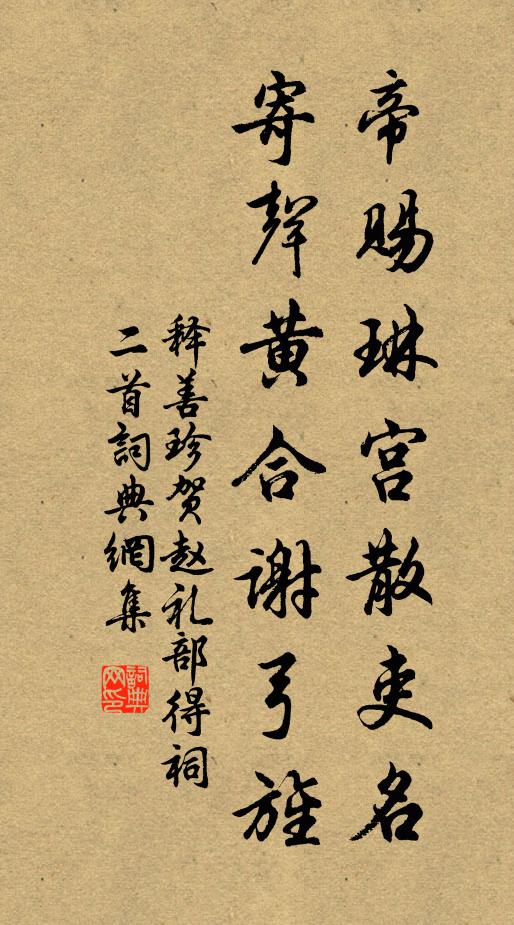 帝赐琳宫散吏名
寄声黄合谢弓旌
释善珍贺赵礼部得祠
二首詞典網集
詞典
网印